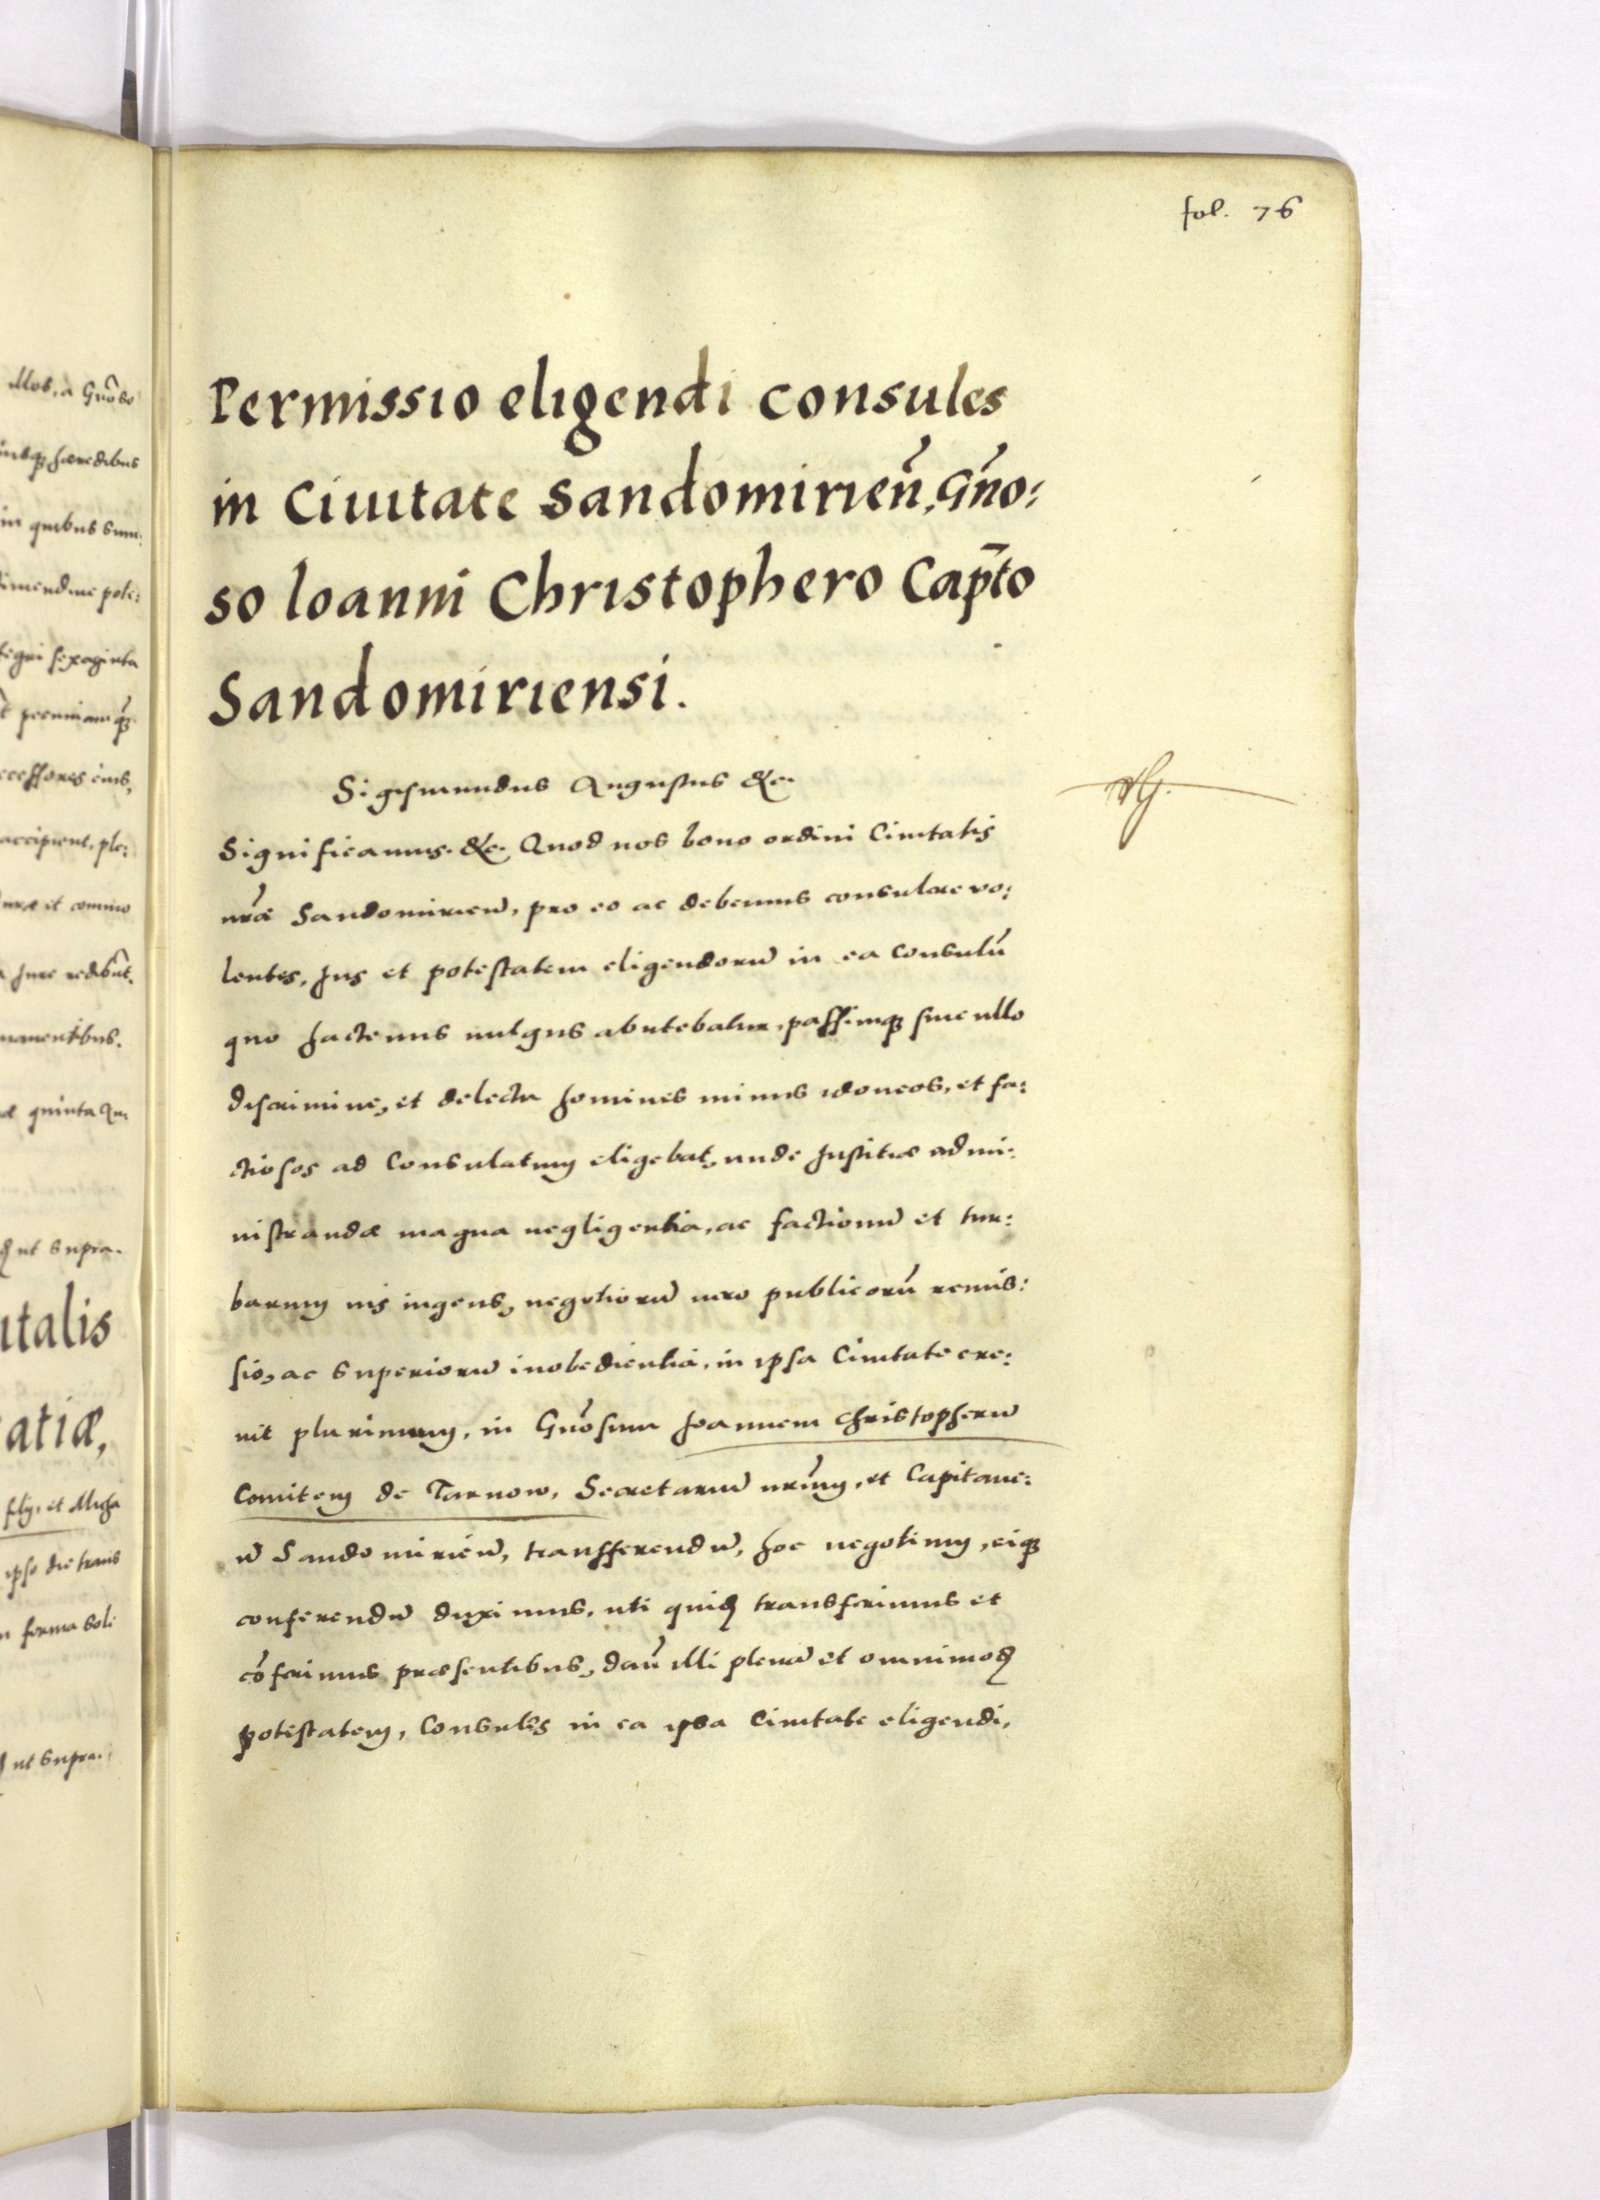 fol. 76
Permissio eligendi consules
in Ciuitate Sandomirień, Gńo:
so Ioanni Christophero Cap̄to
Sandomiriensi.
Sigismundus Augustus &c.
Significamus. &c. Quod nos bono ordini Ciuitatis
nr̃æ Sandomirień, pro eo ac debemus consulere vo:
lentes, Jus et potestatem eligendorũ in ea Consulũ
quo hactenus uulgus abutebatur, passimq₃ sine ullo
discrimine, et delectu homines minus idoneos, et fa:
ctiosos ad Consulatum eligebat, unde Justitiæ admi:
nistrandæ magna negligentia, ac factionũ et tur:
barum uis ingens, negotiorũ uero publicorũ remis:
sio, ac Superiorũ inobedientia, in ipsa Ciuitate cre:
uit plurimum, in Gñosum Joannem Christopherũ
Comitem de Tarnow, Secretariũ nr̃um, et Capitane:
ũ Sandomirień, transferendũ, hoc negotium, eiq₃
conferendũ duximus, uti quidẽ transferimus et
cõferimus præsentibus, dañ illi plenã et omnimodã
potestatem, Consules in ea ipsa Ciuitate eligendi,
illos, a Gñoso
hæredibus
in quibus sum:
sexaginta
pecuniamq₃
cessores eius,
accipient, ple:
et commo
Jure redibũt.
quinta
ut supra.
italis
atiæ,
et Micha
ipso die trans
forma soli
ut supra.